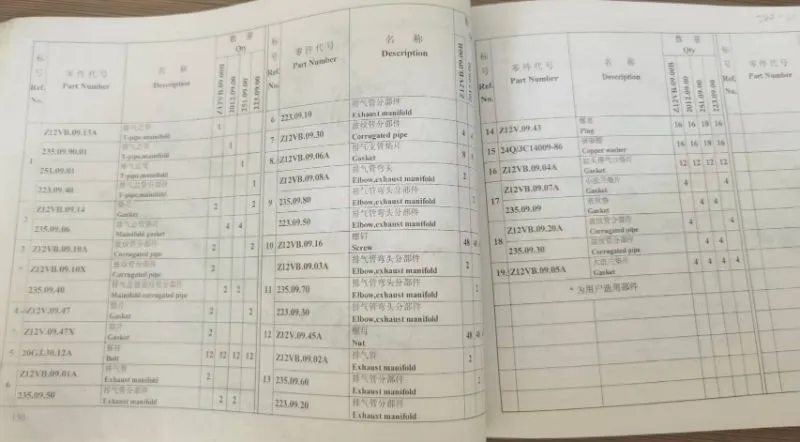 标号 Ref. No.
零件代号 Part Number
名称 Description
数量 Qty
Z12VB.09.00B
2012.09.00
251.09.00
223.09.00
1
Z12VB.09.13A T-pipe,manifold 1
235.09.90.01 T-pipe,manifold 1
251.09.01 T-pipe,manifold 1
223.09.40 T-pipe,manifold 1
2
Z12VB.09.14 垫片 Gasket 2 2
235.09.06 Mainfold gasket 4 4
3 Z12VB.09.10A 波纹管分部件 Corrugated pipe 2 2
Z12VB.09.10X 波纹管分部件 Corrugated pipe 2
235.09.40 Mainfold corrugated pipe 2 2
4 Z12V.09.47 垫片 Gasket 2 2
Z12V.09.47X 垫片 Gasket 2
5 20GJ.30.12A 螺栓 Bolt 12 12 12 12
6
Z12VB.09.01A 排气管 Exhaust manifold 2
235.09.50 排气管分部件 Exhaust manifold 2 2
130
标号 Ref. No.
零件代号 Part Number
名称 Description
Z12VB.09.00B
2012.09.00
6 223.09.10 排气管分部件 Exhaust manifold
7 Z12VB.09.30 波纹管分部件 Corrugated pipe 4
8 Z12VB.09.06A 排气支管垫片 Gasket 8
Z12VB.09.08A 排气管弯头 Elbow,exhaust manifold 2
9 235.09.80 排气管弯头分部件 Elbow,exhaust manifold
223.09.50 排气管弯头分部件 Elbow,exhaust manifold
10 Z12VB.09.16 螺钉 Screw 48
Z12VB.09.03A 排气管弯头分部件 Elbow,exhaust manifold 2
11 235.09.70 排气管弯头分部件 Elbow,exhaust manifold
223.09.30 排气管弯头分部件 Elbow,exhaust manifold
12 Z12V.09.45A 螺母 Nut 48
Z12VB.09.02A 排气管 Exhaust manifold 2
13 235.09.60 排气管分部件 Exhaust manifold
223.09.20 排气管分部件 Exhaust manifold
标号 Ref. No.
零件代号 Part Number
名称 Description
数量 Qty
Z12VB.09.00B
2012.09.00
251.09.00
223.09.00
标号 Ref. No.
零件代号 Part Number
14 Z12V.09.43 螺塞 Plug 16 16 18 16
15 24Q/JC14009-86 Copper washer 16 16 18 16
16 Z12VB.09.04A Gasket 12 12 12 12
Z12VB.09.07A 小法兰垫片 Gasket 4 4
17
235.09.09 Gasket 4 4
Z12VB.09.20A 波纹管分部件 Corrugated pipe 4 4
18
235.09.30 波纹管分部件 Corrugated pipe 4 4
19 Z12VB.09.05A 大法兰垫片 Gasket 4 4 4 4
* 为用户选用部件